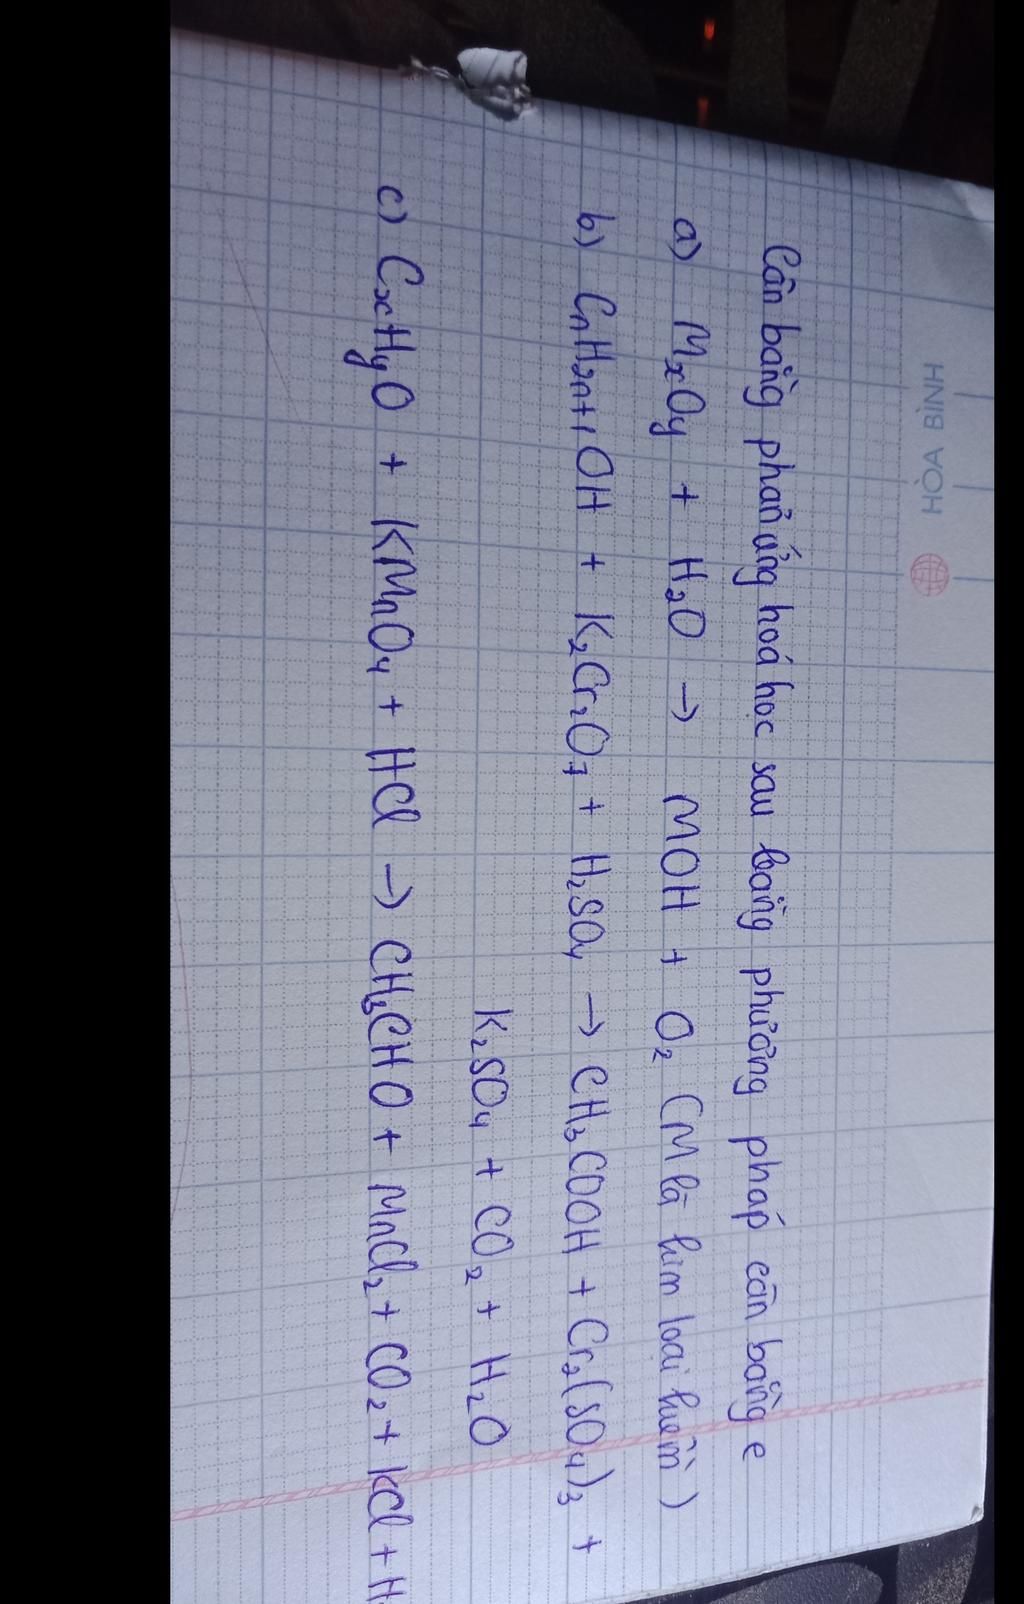 HÒA BÌNH
Cân bằng phản ứng hoá học sau bằng phương pháp cân bằng e
a) MxOy + H₂O → MOH + O₂ (M là kim loại kiềm)
b) CnH2n+1OH + K₂Cr₂O₇ + H₂SO₄ → CH₃COOH + Cr₂(SO₄)₃ +
K₂SO₄ + CO₂ + H₂O
c) CxHyO + KMnO₄ + HCl → CH₃CHO + MnCl₂ + CO₂ + KCl + H